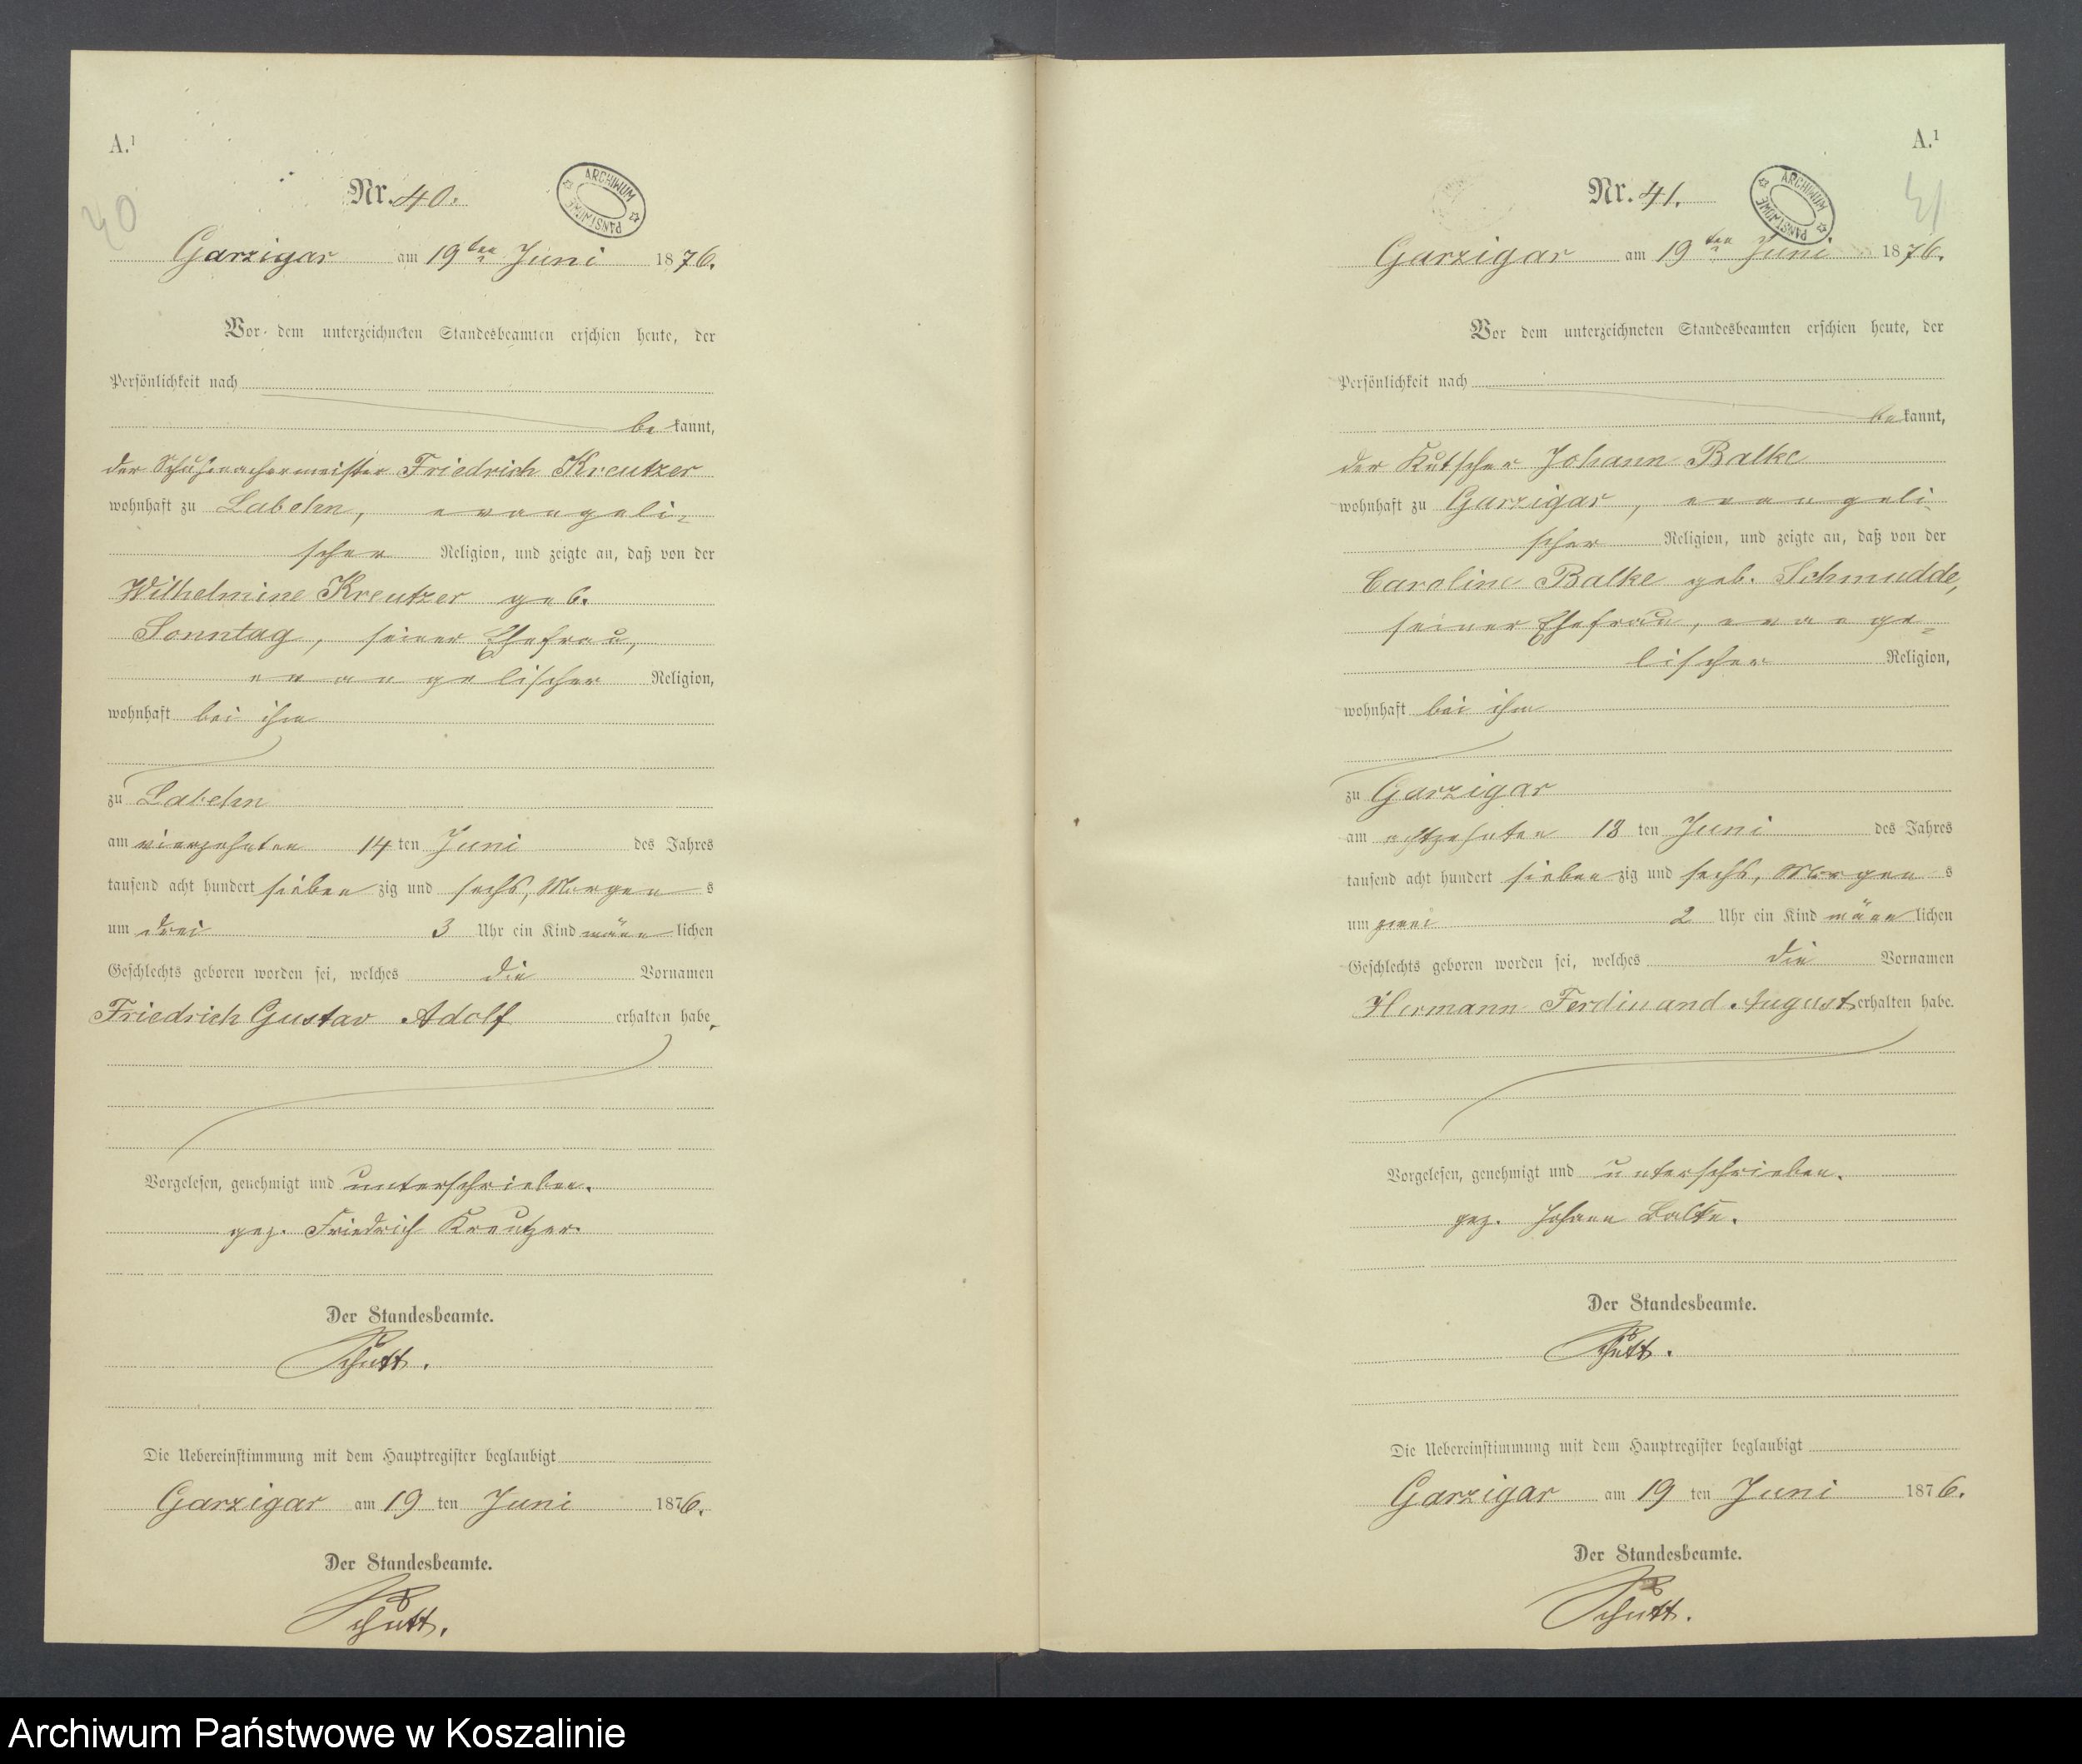 A.¹
40
Nr. 40.
ARCHIWUM PAŃSTWOWE
Garzigar am 19ten Juni 1876.
Vor dem unterzeichneten Standesbeamten erschien heute, der
Persönlichkeit nach
bekannt,
der Schuhmachermeister Friedrich Kreutzer
wohnhaft zu Labehn, evangeli-
scher Religion, und zeigte an, daß von der
Wilhelmine Kreutzer geb.
Sonntag, seiner Ehefrau,
evangelischer Religion,
wohnhaft bei ihm
zu Labehn
am vierzehnten 14 ten Juni des Jahres
tausend acht hundert siebenzig und sechs, Morgens
um drei 3 Uhr ein Kind männlichen
Geschlechts geboren worden sei, welches die Vornamen
Friedrich Gustav Adolf erhalten habe.
Vorgelesen, genehmigt und unterschrieben.
gez. Friedrich Kreutzer.
Der Standesbeamte.
Schütt.
Die Uebereinstimmung mit dem Hauptregister beglaubigt
Garzigar am 19 ten Juni 1876.
Der Standesbeamte.
Schütt.
A.¹
41
Nr. 41.
ARCHIWUM PAŃSTWOWE
Garzigar am 19ten Juni 1876.
Vor dem unterzeichneten Standesbeamten erschien heute, der
Persönlichkeit nach
bekannt,
der Kutscher Johann Balke
wohnhaft zu Garzigar, evangeli-
scher Religion, und zeigte an, daß von der
Caroline Balke geb. Schmudde,
seiner Ehefrau, evange-
lischer Religion,
wohnhaft bei ihm
zu Garzigar
am achtzehnten 18 ten Juni des Jahres
tausend acht hundert siebenzig und sechs, Morgens
um zwei 2 Uhr ein Kind männlichen
Geschlechts geboren worden sei, welches die Vornamen
Hermann Ferdinand August erhalten habe.
Vorgelesen, genehmigt und unterschrieben.
gez. Johann Balke.
Der Standesbeamte.
Schütt.
Die Uebereinstimmung mit dem Hauptregister beglaubigt
Garzigar am 19 ten Juni 1876.
Der Standesbeamte.
Schütt.
Archiwum Państwowe w Koszalinie